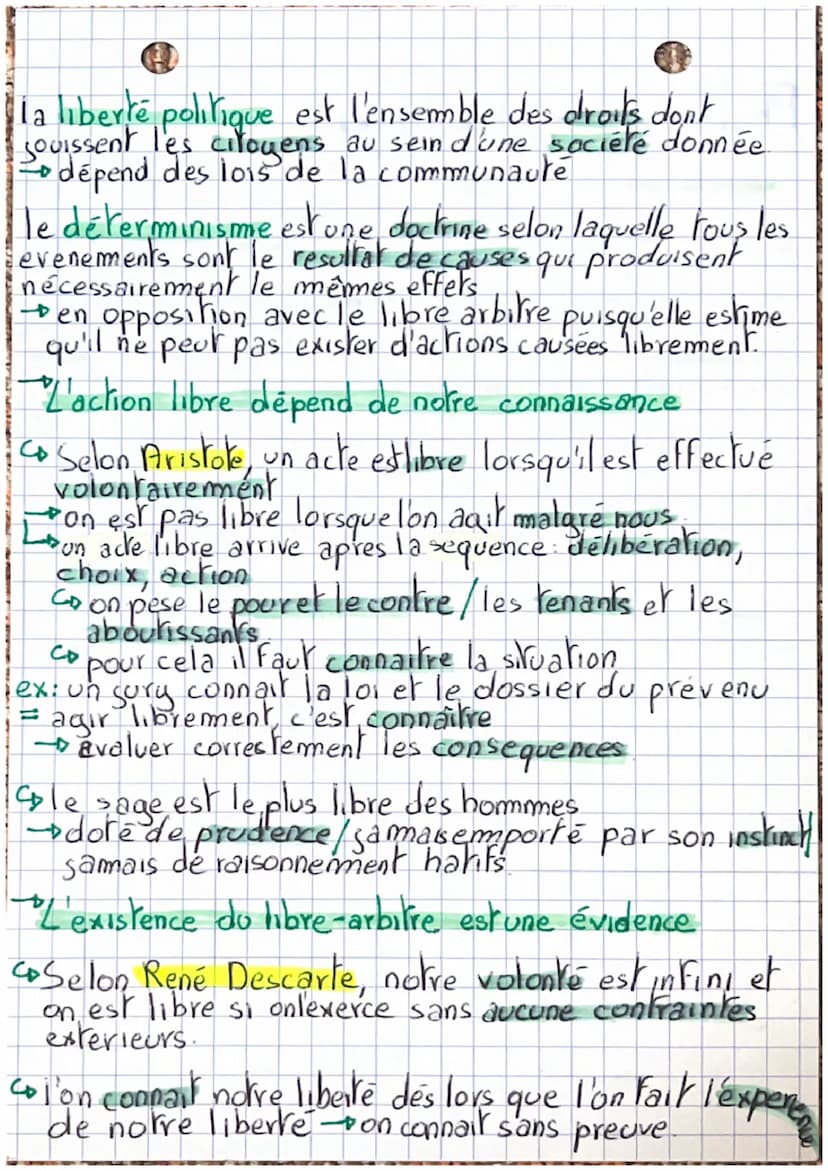 la liberté politique est l'ensemble des droits dont
jouissent les citoyens au sein d'une société donnée
→ dépend des lois de la communauté
le déterminisme est une doctrine selon laquelle tous les
evenements sont le resultat de causes qui produisent
nécessairement le mêmes effets
→ en opposition avec le libre arbitre puisqu'elle estime
qu'il ne peut pas exister d'actions causées librement.
→ L'action libre dépend de notre connaissance
↪ Selon Aristote, un acte est libre lorsqu'il est effectué
volontairement
→ on est pas libre lorsque l'on agit malgré nous.
↳ un acte libre arrive apres la sequence : délibération,
choix, action
↪ on pèse le pour et le contre / les tenants et les
aboutissants.
↪ pour cela il faut connaitre la situation
ex: un jury connait la loi et le dossier du prévenu
= agir librement, c'est connaître
→ évaluer correctement les consequences
↪ le sage est le plus libre des hommes
→ doté de prudence / jamais emporté par son instinct
jamais de raisonnement hatifs.
→ L'existence du libre-arbitre est une évidence
↪ Selon René Descarte, notre volonté est infini et
on est libre si on l'exerce sans aucune contraintes
exterieurs.
↪ l'on connait notre liberté dès lors que l'on fait l'experience
de notre liberté → on connait sans preuve.